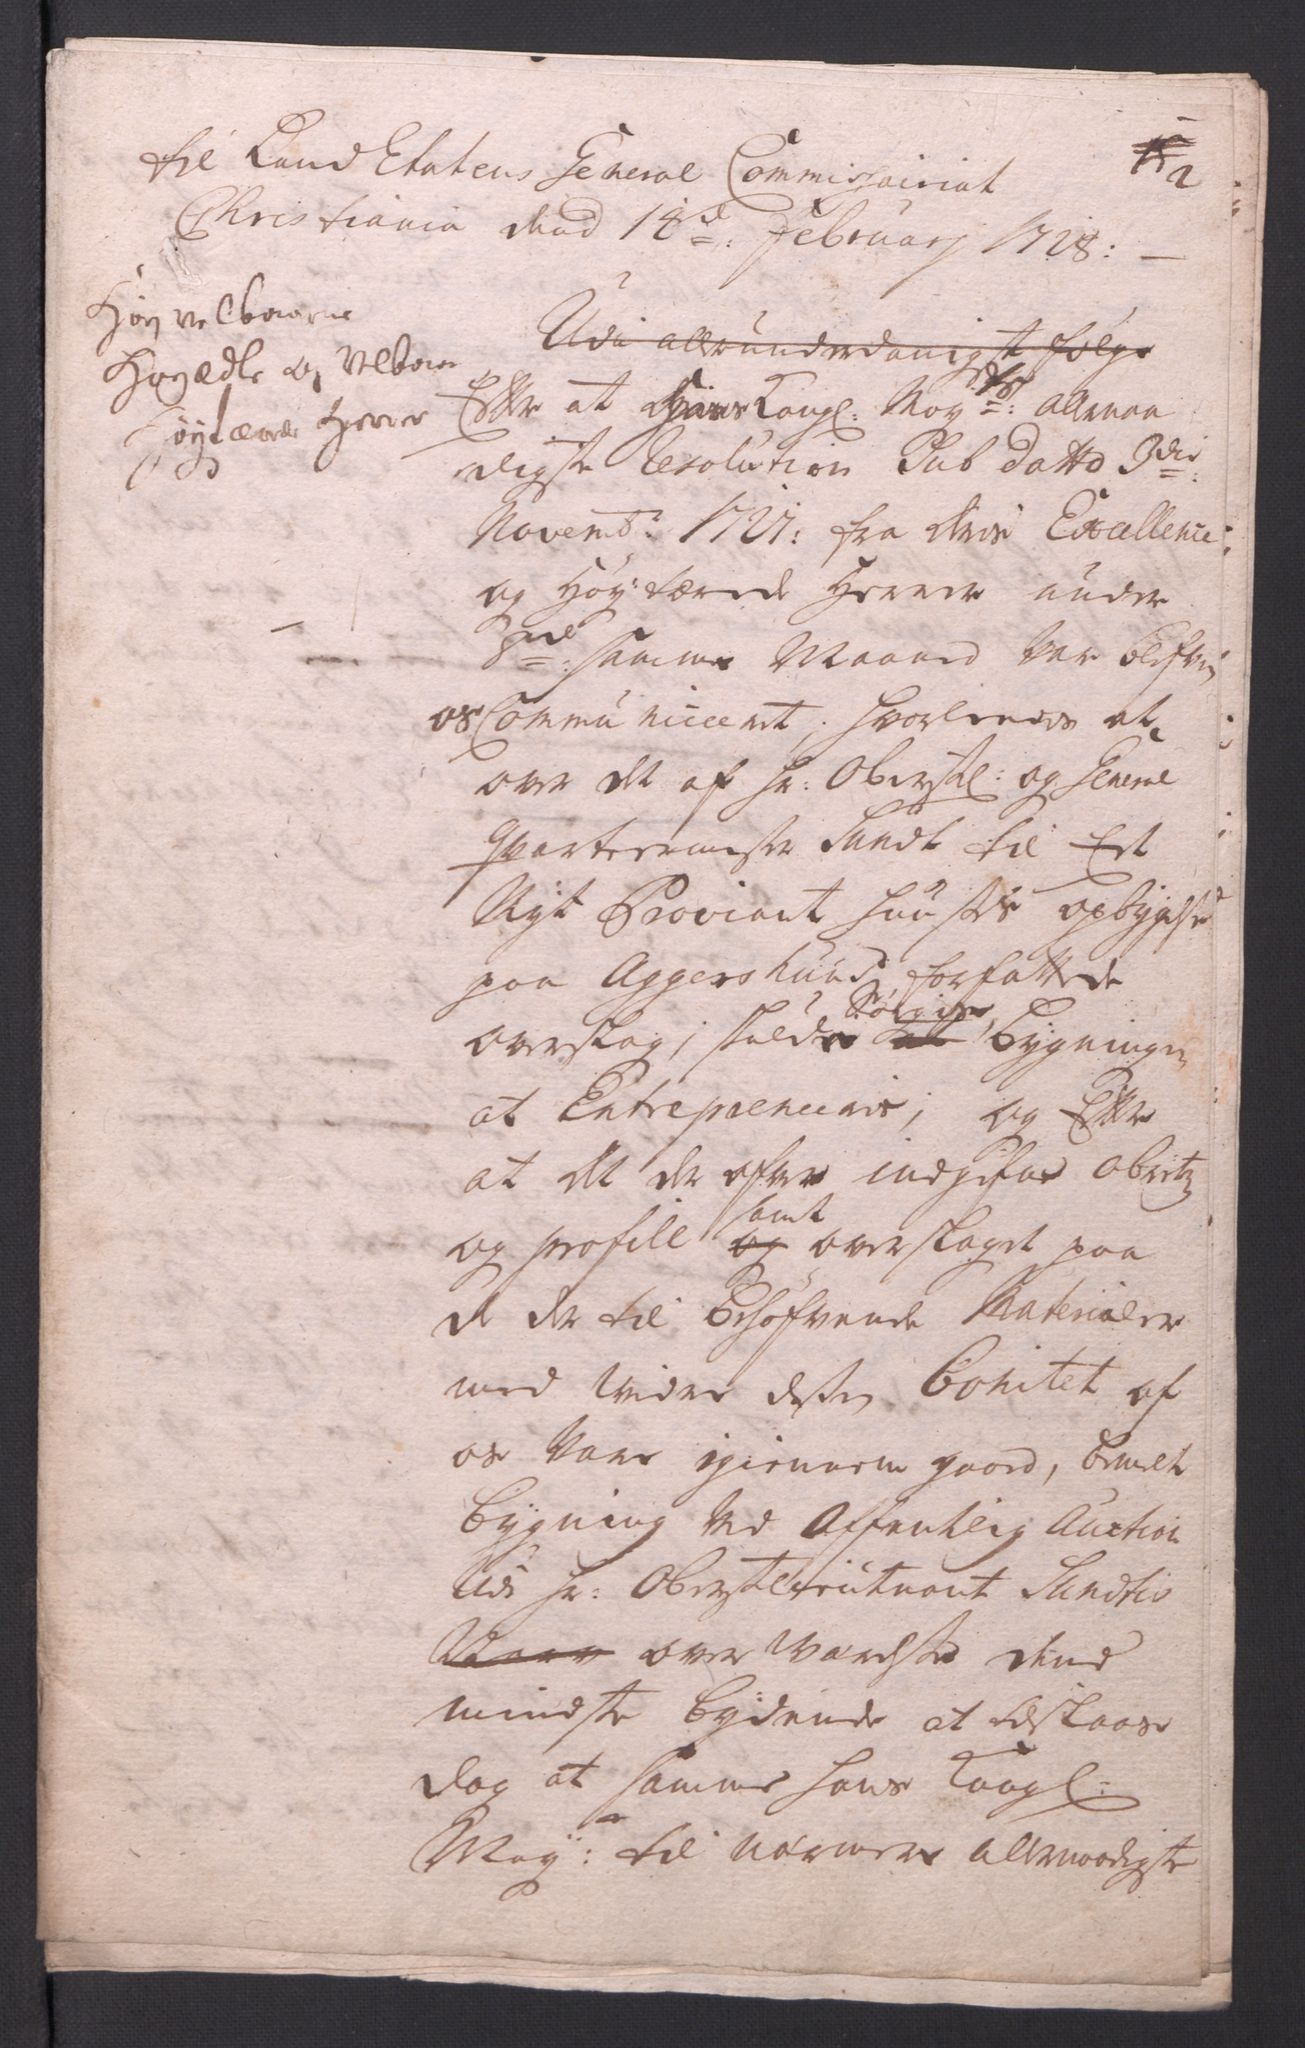 til Land Etatens General Commissairiat
2
Christiania dend 14d: February 1728: —
Høy velbaarne
Høyædle og Velbaarne
Høytærede Herrer
Udi allerunderdanigst følge
Efter at Hans Kongl: May:ts: allernaa
digste Resolution Sub Datto 3die
Novembr: 1727: fra deris Excellence
og Høytærede Herrer under
8de: samme Maaned var blefven
os Communiceret, hvorledes at
over det af Hr: Oberstl: og General
Qvarteermester Sundt til Et
Nyt Proviant Huusis opbygelse
paa Aggershuus, forfattede
overslag, skulde Sørgis, bygningen
at Entreprenneris; og Efter
at det der ofver indgifne Abritz
og profill samt og overslaget paa
de der til behøfvende Materialer
med videre dessen bonitet af
os vare igiennem gaaed, bemelte
bygning ved Offentlig Auction
udi Hr: Oberstlieutnant Sundtis
over værelse dend
mindste bydende at tilslaaes
dog at samme Hans Kongl:
May: til nærmere allernaadigste